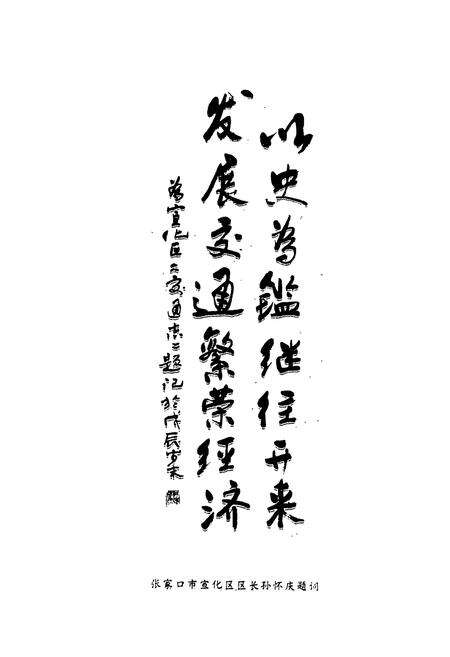 以史為鑑继往开来
发展交通繁荣经济
為宣化区《交通志》题记於戊辰岁末
张家口市宣化区区长孙怀庆题词